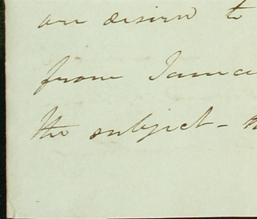 are desired to
from Jamai
the subject - th